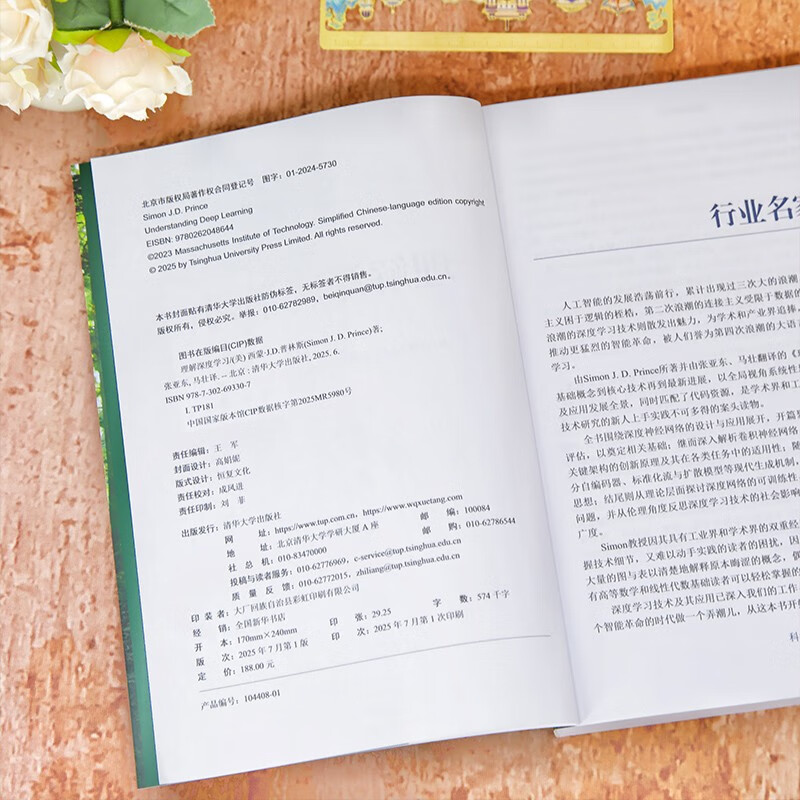 北京市版权局著作权合同登记号 图字：01-2024-5730
Simon J.D. Prince
Understanding Deep Learning
EISBN: 9780262048644
©2023 Massachusetts Institute of Technology. Simplified Chinese-language edition copyright
© 2025 by Tsinghua University Press Limited. All rights reserved.
本书封面贴有清华大学出版社防伪标签，无标签者不得销售。
版权所有，侵权必究。举报：010-62782989，beiqinquan@tup.tsinghua.edu.cn。
图书在版编目(CIP)数据
理解深度学习/(美) 西蒙·J.D.普林斯(Simon J. D. Prince)著；
张亚东, 马壮译. -- 北京 : 清华大学出版社, 2025. 6.
ISBN 978-7-302-69330-7
I. TP181
中国国家版本馆CIP数据核字第2025MR5980号
责任编辑：王 军
封面设计：高娟妮
版式设计：恒复文化
责任校对：成凤进
责任印制：刘 菲
出版发行：清华大学出版社
网 址：https://www.tup.com.cn，https://www.wqxuetang.com
地 址：北京清华大学学研大厦 A 座 邮 编：100084
社 总 机：010-83470000 邮 购：010-62786544
投稿与读者服务：010-62776969，c-service@tup.tsinghua.edu.cn
质 量 反 馈：010-62772015，zhiliang@tup.tsinghua.edu.cn
印 装 者：大厂回族自治县彩虹印刷有限公司
经 销：全国新华书店
开 本：170mm×240mm 印 张：29.25 字 数：574 千字
版 次：2025 年 7 月第 1 版 印 次：2025 年 7 月第 1 次印刷
定 价：188.00 元
产品编号：104408-01
行业名家
人工智能的发展浩荡前行，累计出现过三次大的浪潮
主义困于逻辑的桎梏，第二次浪潮的连接主义受限于数据的
浪潮的深度学习技术则散发出魅力，为学术和产业界追捧。
推动更猛烈的智能革命，被人们誉为第四次浪潮的大语言
学习。
由Simon J. D. Prince所著并由张亚东、马壮翻译的《
基础概念到核心技术再到最新进展，以全局视角系统性
及应用发展全景，同时匹配了代码资源，是学术界和工
技术研究的新人上手实践不可多得的案头读物。
全书围绕深度神经网络的设计与应用展开，开篇
评估，以奠定相关基础；继而深入解析卷积神经网络
关键架构的创新原理及其在各类任务中的适用性；随
分自编码器、标准化流与扩散模型等现代生成机制，
思想；结尾则从理论层面探讨深度网络的可训练性
问题，并从伦理角度反思深度学习技术的社会影响
广度。
Simon教授因其具有工业界和学术界的双重经
握技术细节，又难以动手实践的读者的困扰，因
大量的图与表以清楚地解释原本晦涩的概念，
有高等数学和线性代数基础读者可以轻松掌握的
深度学习技术及其应用已深入我们的工作
个智能革命的时代做一个弄潮儿，从这本书开
科